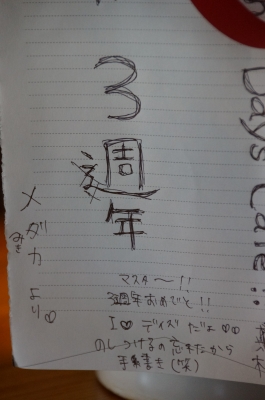 Days Cafe!!
3週年
メダカより♡
みき
マスター〜!!
3週年おめでと!!
I♡デイズだよ♡♡
のしつけるの忘れたから
手書き(笑)